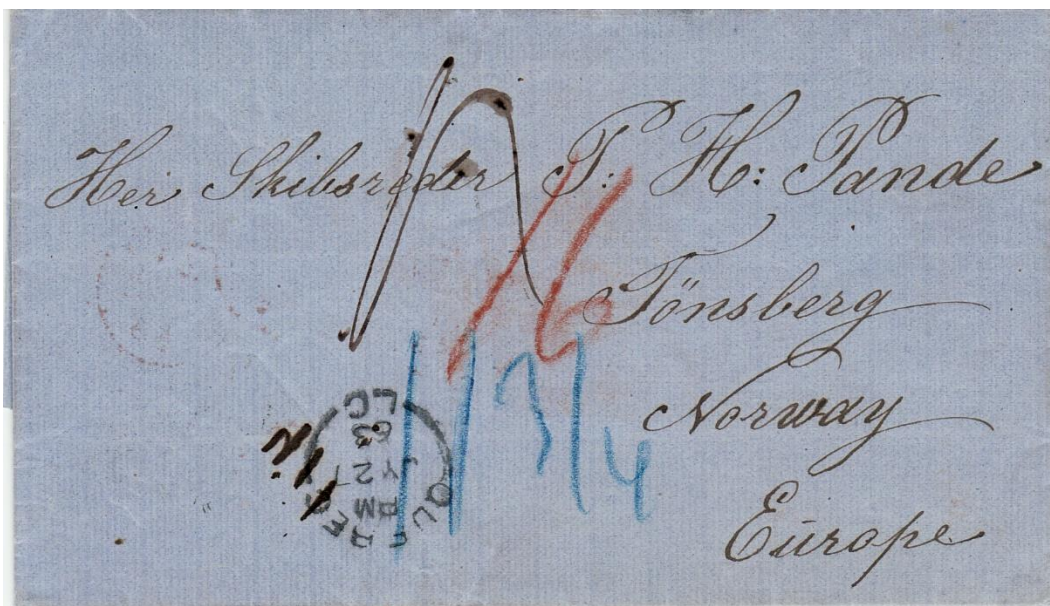 Her Skibsreder P: H: Pande
Tönsberg
Norway
Europe
16
11 3/4
QUEBEC
PM
JY 2
63
LC